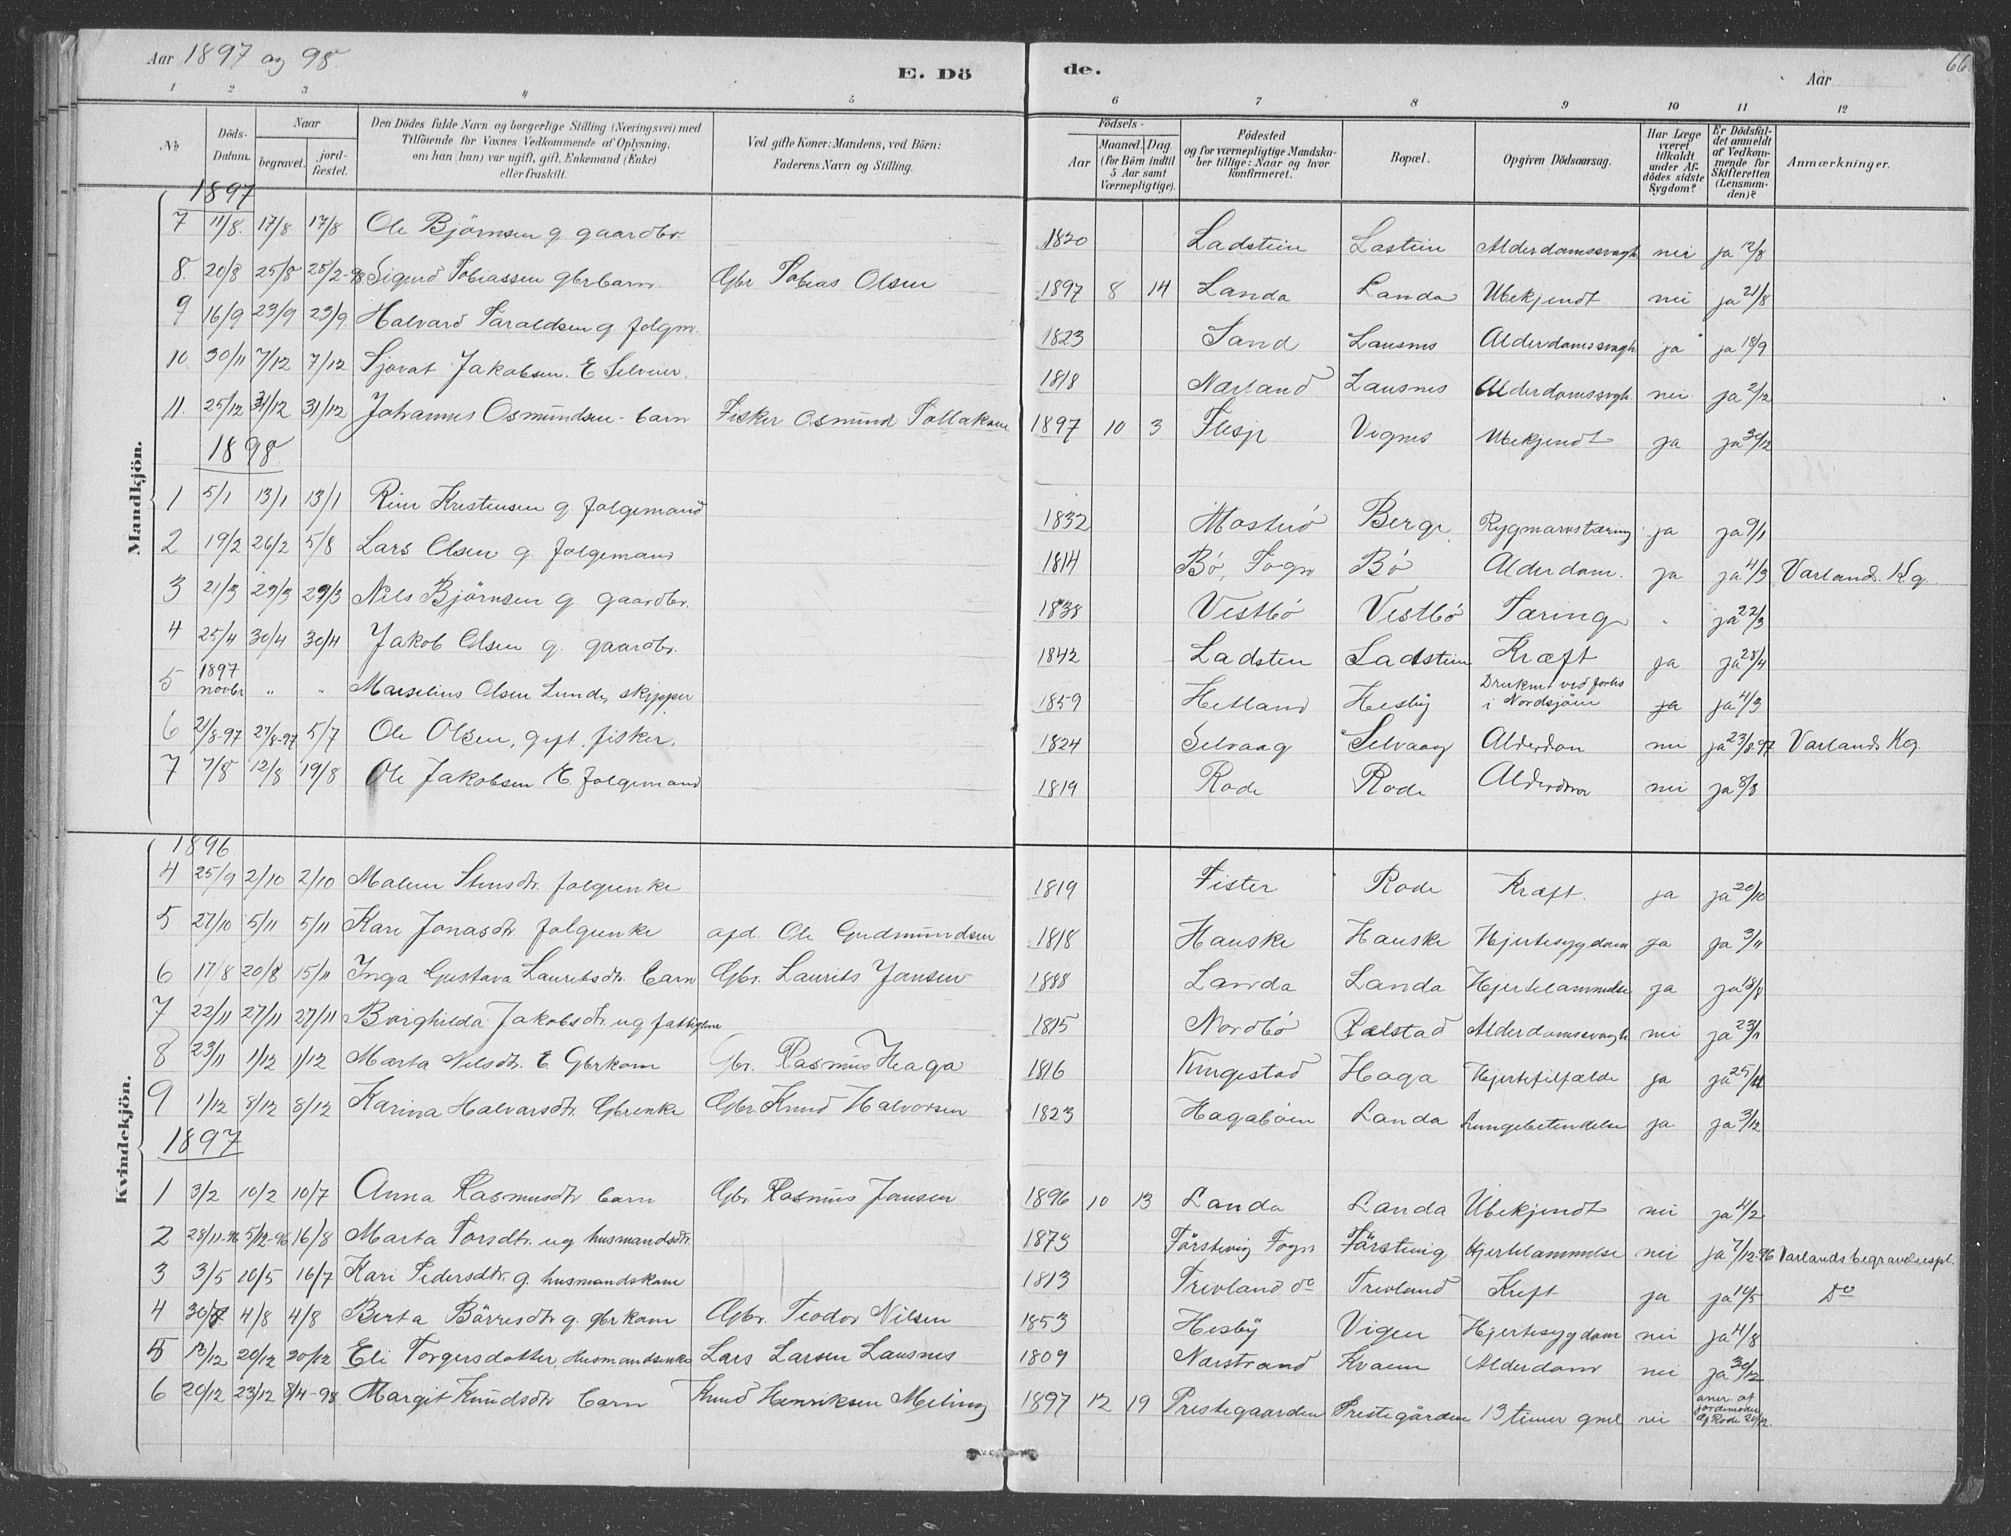 Aar 1897 og 98.
E. Dö de.
Aar
66.
1 2 3 4 5 6 7 8 9 10 11 12
No
Döds-Datum.
Naar
begravet.
jord-fæstet.
Den Dödes fulde Navn og borgerlige Stilling (Næringsvei) med
Tilföiende for Voxnes Vedkommende af Oplysning,
om han (hun) var ugift, gift, Enkemand (Enke)
eller fraskilt.
Ved gifte Koner: Mandens, ved Börn:
Faderens Navn og Stilling.
Födsels-
Aar
Maaned. Dag.
(for Börn indtil
5 Aar samt
Værnepligtige).
Födested
og for værnepligtige Mandska-
ber tillige: Naar og hvor
konfirmeret.
Bopæl.
Opgiven Dödsaarsag.
Har Læge
været
tilkaldt
under Af-
dödes sidste
Sygdom?
Er Dödsfal-
det anmeldt
af Vedkom-
mende for
Skifteretten
(Lensman-
den)?
Anmærkninger.
Mandkjön.
1897
7 11/8. 17/8 17/8 Ole Björnsen g. gaardbr. 1820 Ladstein Lastein Alderdomssvagh nei ja 12/8
8. 20/8 25/8 25/2-98 Sigurd Tobiassen gbrbarn Gbr Tobias Olsen 1897 8 14 Landa Landa Ubekjendt nei ja 21/8
9 16/9 23/9 23/9 Halvard Taraldsen g. folgm. 1823 Sand Lausnes Alderdomssvagh ja ja 18/9
10 30/11 7/12 7/12 Sjovat Jakobsen. E Selveier. 1818 Narland Lausnes Alderdomssvgh. nei ja 2/12
11. 25/12 31/12 31/12 Johannes Osmundsen - barn Fisker Osmund Tollaksen 1897 10 3 Flesje Vignes Ubekjendt ja ja 30/12
1898
1 5/1 13/1 13/1 Reier Kristensen g. folgemand 1832 Mosterö Berge Rygmarvstæring ja ja 9/1
2 19/2 26/2 5/8 Lars Olsen g. folgemand 1814 Bö, Sogn Bö Alderdom. ja ja 4/3 Varlands Kg.
3 21/3 29/3 29/3 Nils Björnsen g gaardbr. 1838 Vestbö Vestbö Tæring " ja 22/3
4 25/4 30/4 30/4 Jakob Olsen g. gaardbr. 1842 Ladsten Ladstein Kræft ja ja 28/4
5 1897 novbr " " Marselius Olsen Lunde, skipper 1859 Helland Hesby Druknet ved forlis i Nordsjöen ja ja 4/3
6 21/8-97 27/8-97 5/7 Ole Olsen, gift, fisker. 1824 Selvaag Selvaag Alderdom nei ja 23/8 97 Varlands Kg
7 7/8 12/8 19/8 Ole Jakobsen E. folgemand 1819 Rode Rode Alderdom nei ja 8/8
Kvindekjön.
1896
4 25/9 2/10 2/10 Malene Stensdtr. folgenke 1819 Fister Rode Kræft. ja ja 20/10
5 27/10 5/11 5/11 Kari Jonasdtr folgenke afd. Ole Gudmundsen 1818 Hauske Hauske Hjertesygdom ja ja 3/11
6 17/8 20/8 15/11 Inga Gustava Lauritsdtr. barn Gbr. Laurits Jansen 1888 Landa Landa Hjertelammelse ja ja 18/8
7 22/11 27/11 27/11 Borghilda Jakobsdtr. ug fattiglem 1815 Nordbö Rælstad Alderdomssvagh nei ja 23/11
8 23/11 1/12 1/12 Marta Nilsdtr. E Gbrkom Gbr. Rasmus Haga 1816 Kingestad Haga Hjertefilfælde ja ja 25/11
9 1/12 8/12 8/12 Karina Halvarsdtr Gbrenke Gbr. Knud Halvorsen 1823 Hagaböen Landa Lungebetendelse ja ja 3/12
1897
1 3/2 10/2 10/7 Anna Rasmusdtr barn Gbr. Rasmus Jansen 1896 10 13 Landa Landa Ubekjendt nei ja 4/2
2 28/11-96 5/12-96 16/8 Marta Torsdtr. ug husmandsdtr. 1873 Förstveig Sogn Förstveig Hjertelammelse nei ja 7/12 96 Varlands begravelsespl.
3 3/5 10/5 16/7 Kari Pedersdtr g. husmandskone 1813 Trevland do Trevland Kreft ja ja 10/5 Do
4 30/7 4/8 4/8 Berta Börresdtr g. gbr kone Gbr. Teodor Nilsen 1853 Hesby Vigen Hjertesygdom nei ja 4/8
5 13/12 20/12 20/12 Eli Torgersdotter, Husmandsenke Lars Larsen Lausnes 1809 Narstrand Kvame Alderdom nei ja 30/12
6 20/12 23/12 8/4-98 Margit Knudsdtr barn Knud Henriksen Meling 1897 12 19 Prestegaarden Prestegården 13 timer gml nei aner. af jordemoder Rode 20/12.